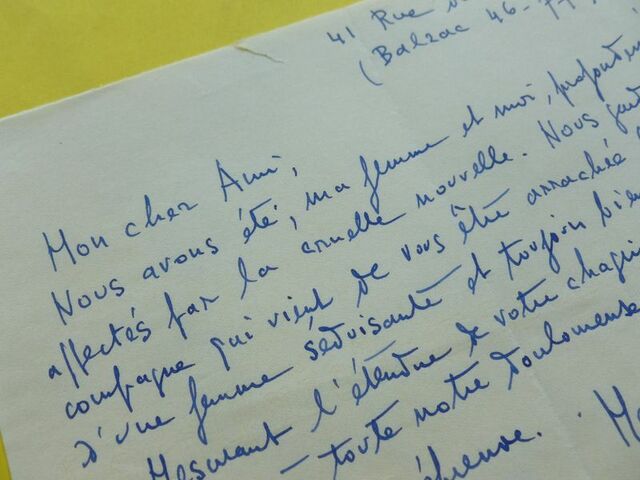 41 Rue
(Balzac 46-77
Mon cher Ami,
Nous avons été, ma femme et moi,
affectés par la cruelle nouvelle. Nous
compagne qui vient de vous être arrachée
d'une femme séduisante et toujours bien
Mesurant l'étendue de votre chagrin
toute notre douloureuse